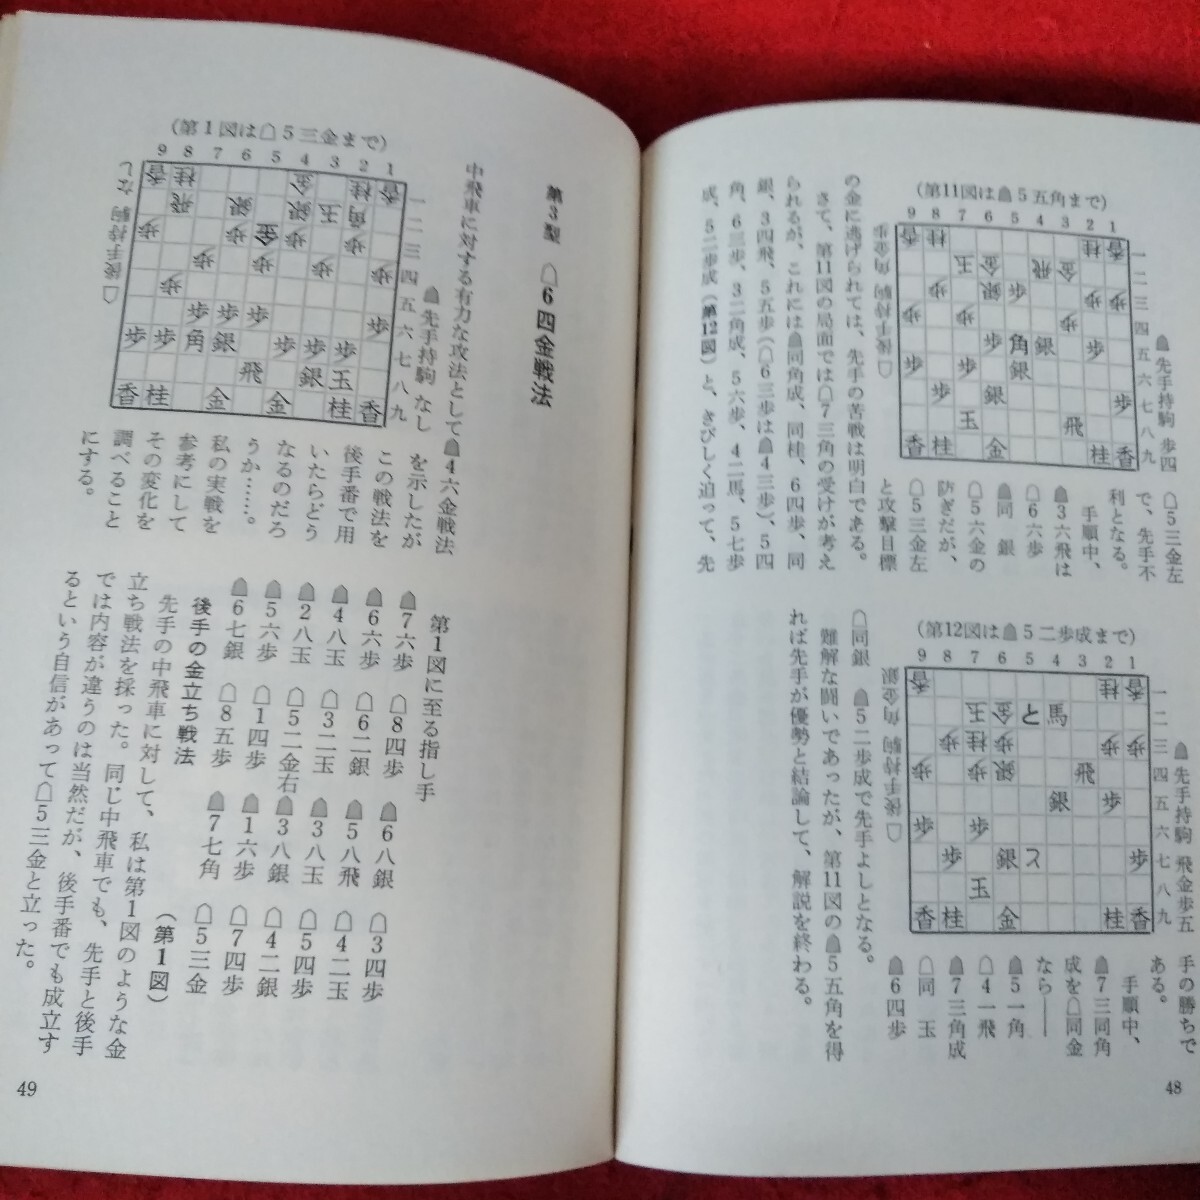 (第11図は☗5五角まで)
9 8 7 6 5 4 3 2 1
一二三四五六七八九
☗先手持駒 歩四
☖5三金左
で、先手不
利となる。
手順中、
☗3六飛は
☖6六歩
☗同 銀
☖5六金の
防ぎだが、
☖5三金左
と攻撃目標
の金に逃げられては、先手の苦戦は明白である。
さて、第11図の局面では☖7三角の受けが考え
られるが、これには☗同角成、同桂、6四歩、同
銀、3四飛、5五歩(☖6三歩は☗4三歩)、5四
角、6三歩、3二角成、5六歩、4二馬、5七歩
成、5二歩成(第12図)と、きびしく迫って、先
(第12図は☗5二歩成まで)
9 8 7 6 5 4 3 2 1
一二三四五六七八九
☗先手持駒 飛金歩五
☖後手持駒 角金銀
手の勝ちで
ある。
手順中、
☗7三同角
成を☖同金
なら――
☗5一角
☖4一飛
☗7三角成
☖同 玉
☗6四歩
☖同銀 ☗5二歩成で先手よしとなる。
難解な闘いであったが、第11図の☗5五角を得
れば先手が優勢と結論して、解説を終わる。
48
第3型 ☖6四金戦法
中飛車に対する有力な攻法として☗4六金戦法
を示したが
この戦法を
後手番で用
いたらどう
なるのだろ
うか……。
私の実戦を
参考にして
その変化を
調べること
にする。
(第1図は☖5三金まで)
9 8 7 6 5 4 3 2 1
一二三四五六七八九
☗先手持駒 なし
☖後手持駒 なし
第1図に至る指し手
☗7六歩 ☖8四歩 ☗6八銀 ☖3四歩
☗6六歩 ☖6二銀 ☗5八飛 ☖4二玉
☗4八玉 ☖3二玉 ☗3八玉 ☖5四歩
☗2八玉 ☖5二金右 ☗3八銀 ☖4二銀
☗5六歩 ☖1四歩 ☗1六歩 ☖7四歩
☗6七銀 ☖8五歩 ☗7七角 ☖5三金
(第1図)
後手の金立ち戦法
先手の中飛車に対して、私は第1図のような金
立ち戦法を採った。同じ中飛車でも、先手と後手
では内容が違うのは当然だが、後手番でも成立す
るという自信があって☖5三金と立った。
49